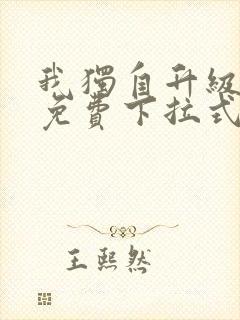 我獨自升級
免費下拉式
王熙然